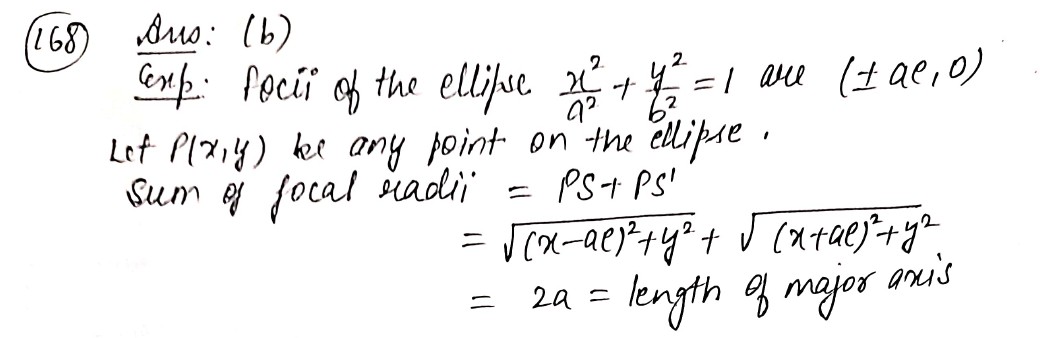 (168) Ans: (b)
Exp: Focii of the ellipse x²/a² + y²/b² = 1 are (± ae, 0)
Let P(x,y) be any point on the ellipse.
Sum of focal radii = PS + PS'
= √((x-ae)²+y²) + √((x+ae)²+y²)
= 2a = length of major axis